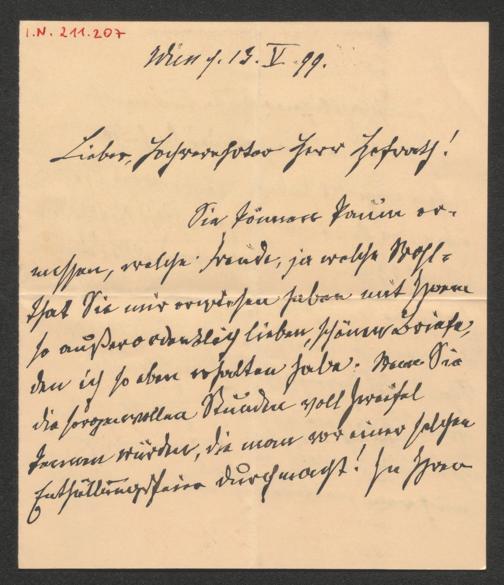 I.N. 211.207
Wien d. 13. V. 99.
Lieber, hochverehrter Herr Hofrath!
Sie können kaum er-
messen, welche Freude, ja welche Wohl-
that Sie mir erwiesen haben mit Ihrem
so außerordentlich lieben, schönen Briefe,
den ich so eben erhalten habe. Wenn Sie
die sorgenvollen Stunden voll Zweifel
kennen würden, die man vor einer solchen
Enthüllungsfeier durchmacht! In Ihren